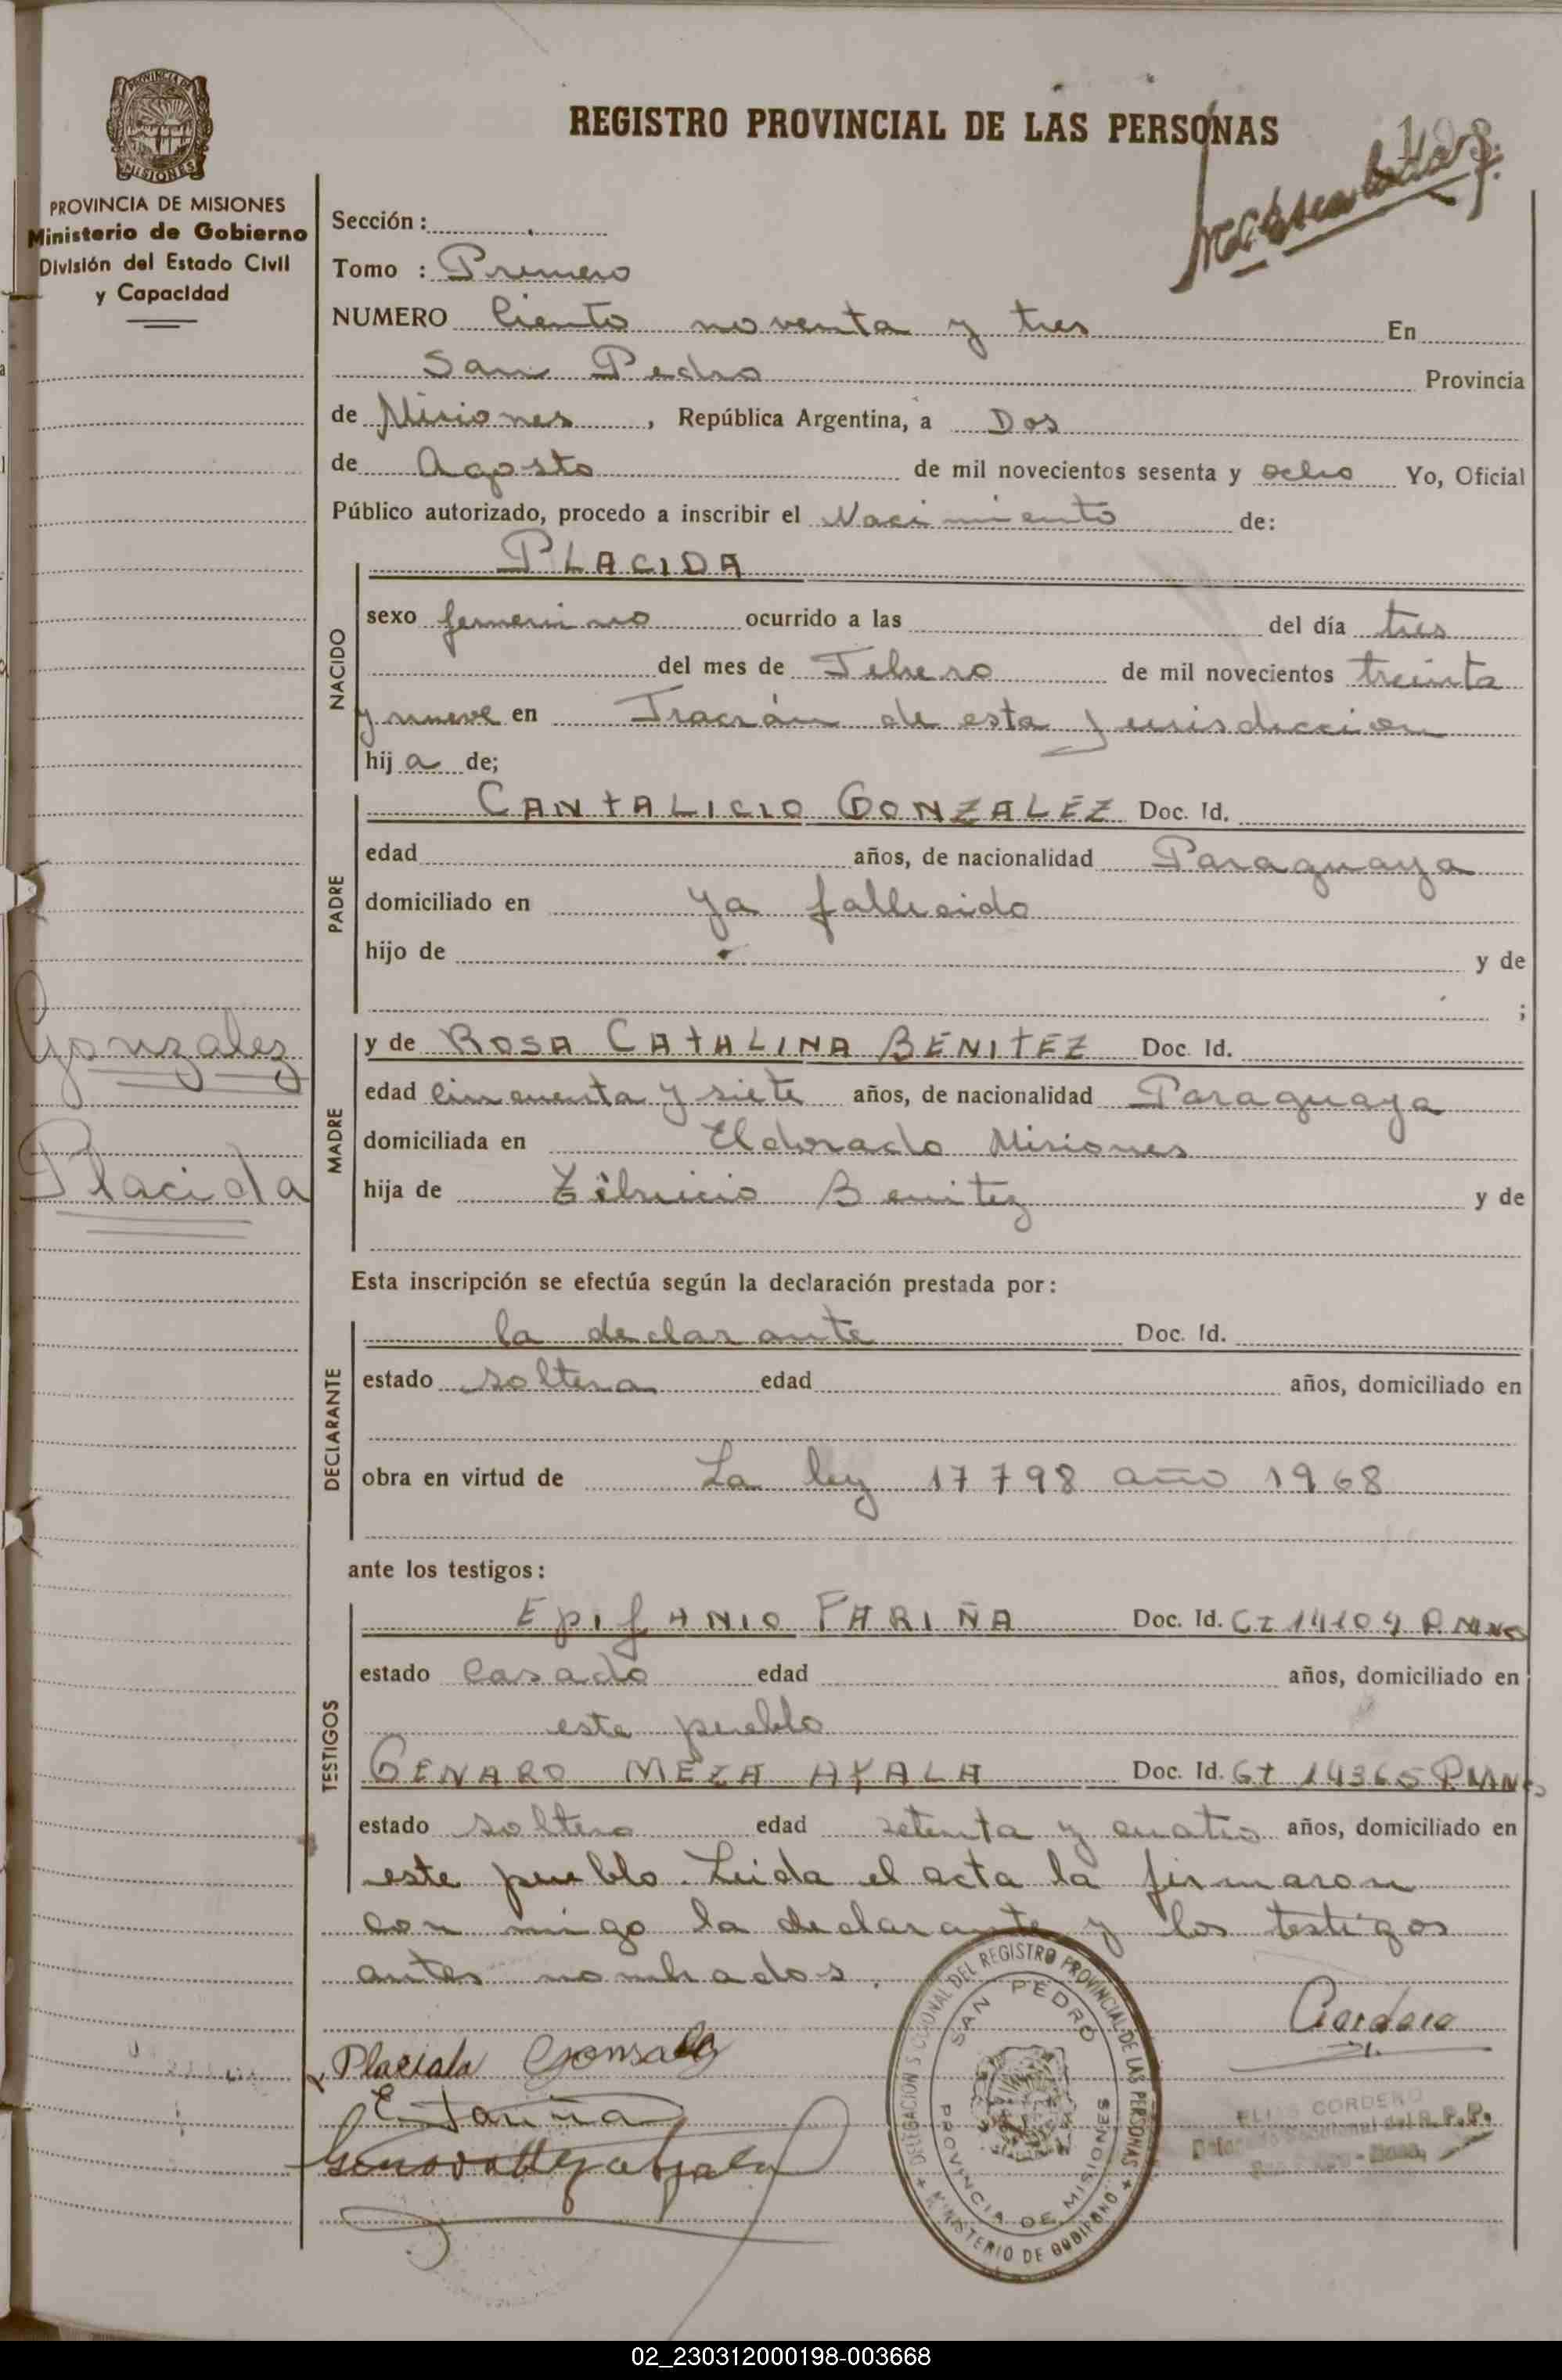 REGISTRO PROVINCIAL DE LAS PERSONAS
193
PROVINCIA DE MISIONES
MISIONES
PROVINCIA DE MISIONES
Ministerio de Gobierno
División del Estado Civil
y Capacidad
Sección:
Tomo : Primero
NUMERO Ciento noventa y tres En
San Pedro Provincia
de Misiones, República Argentina, a Dos
de Agosto de mil novecientos sesenta y ocho Yo, Oficial
Público autorizado, procedo a inscribir el Nacimiento de:
NACIDO
PLACIDA
sexo femenino ocurrido a las del día tres
del mes de Febrero de mil novecientos treinta
y nueve en Fracrán de esta Jurisdiccion
hij a de;
PADRE
CANTALICIO GONZALEZ Doc. Id.
edad años, de nacionalidad Paraguaya
domiciliado en ya fallecido
hijo de y de
;
Gonzalez
Placida
MADRE
y de ROSA CATALINA BENITEZ Doc. Id.
edad cincuenta y siete años, de nacionalidad Paraguaya
domiciliada en Eldorado Misiones
hija de Benitez y de
Esta inscripción se efectúa según la declaración prestada por:
DECLARANTE
la declarante Doc. Id.
estado soltera edad años, domiciliado en
obra en virtud de La ley 17798 año 1968
ante los testigos:
TESTIGOS
EpifANIO FARIÑA Doc. Id. CI 14109 P. MNES
estado Casado edad años, domiciliado en
este pueblo
GENARO MEZA AYALA Doc. Id. CI 14365 P. MNES
estado soltero edad setenta y cuatro años, domiciliado en
este pueblo. Leida el acta la firmaron
con migo la declarante y los testigos
antes nombrados.
Cordero
Placida Gonsalez
E. Fariña
DELEGACION SECCIONAL DEL REGISTRO PROVINCIAL DE LAS PERSONAS
SAN PEDRO
PROVINCIA DE MISIONES
MINISTERIO DE GOBIERNO
ELIAS CORDERO
Delegado Seccional del R. P. P.
02_230312000198-003668